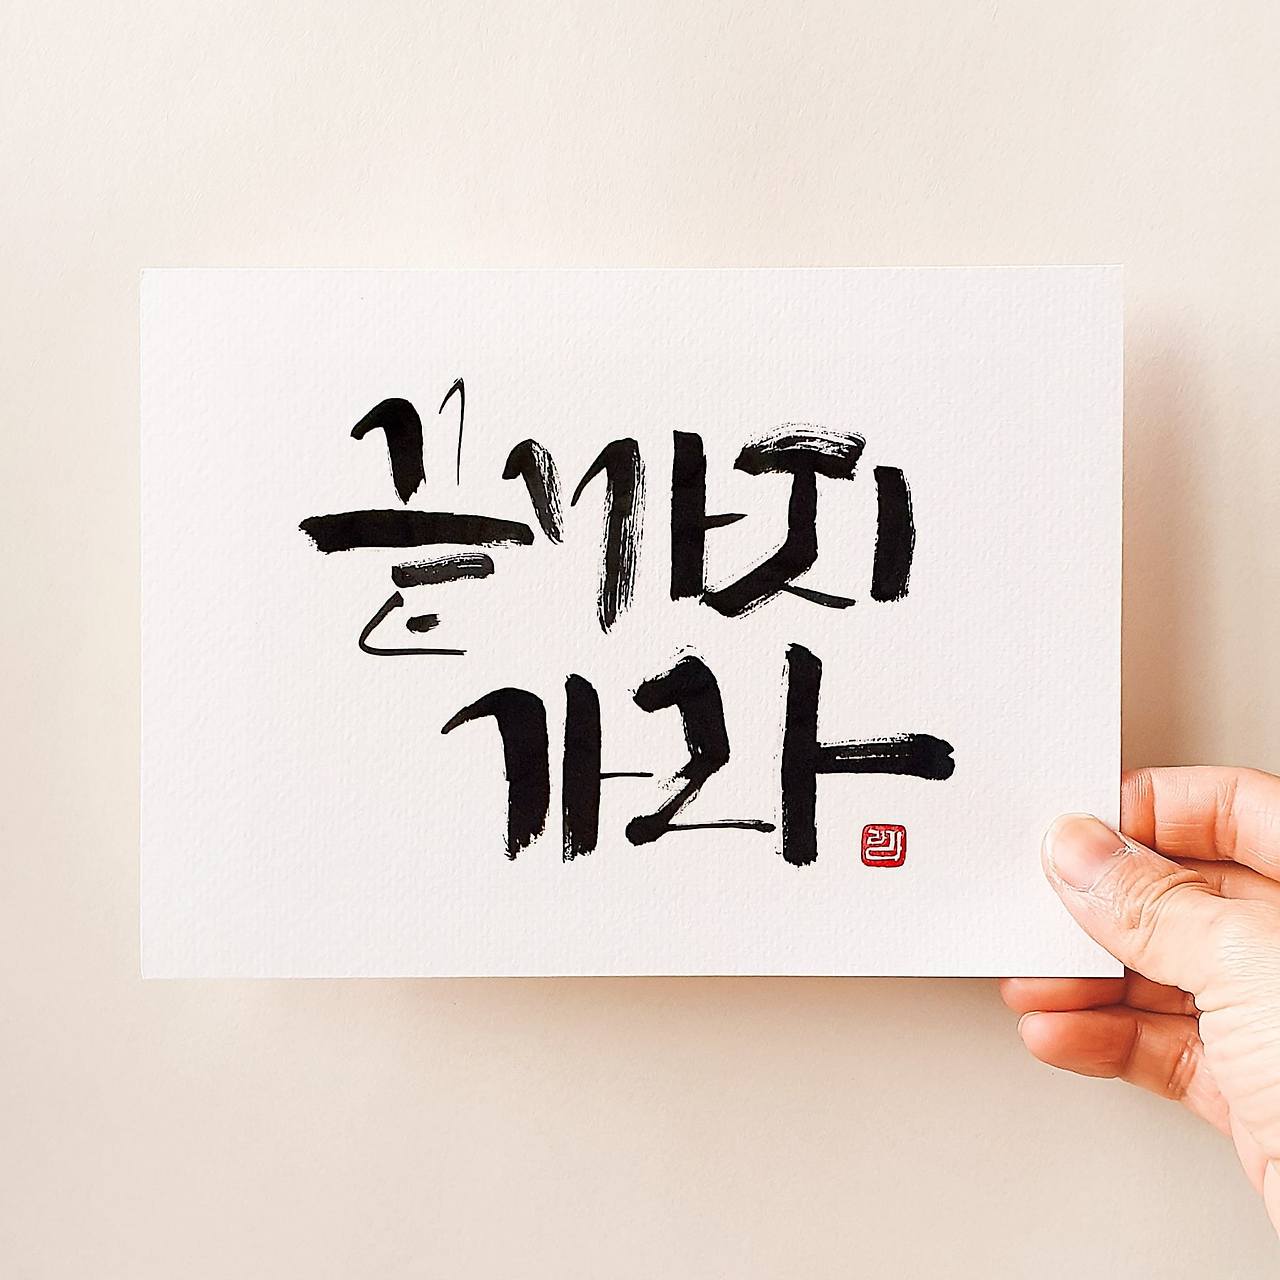 끝까지
가라